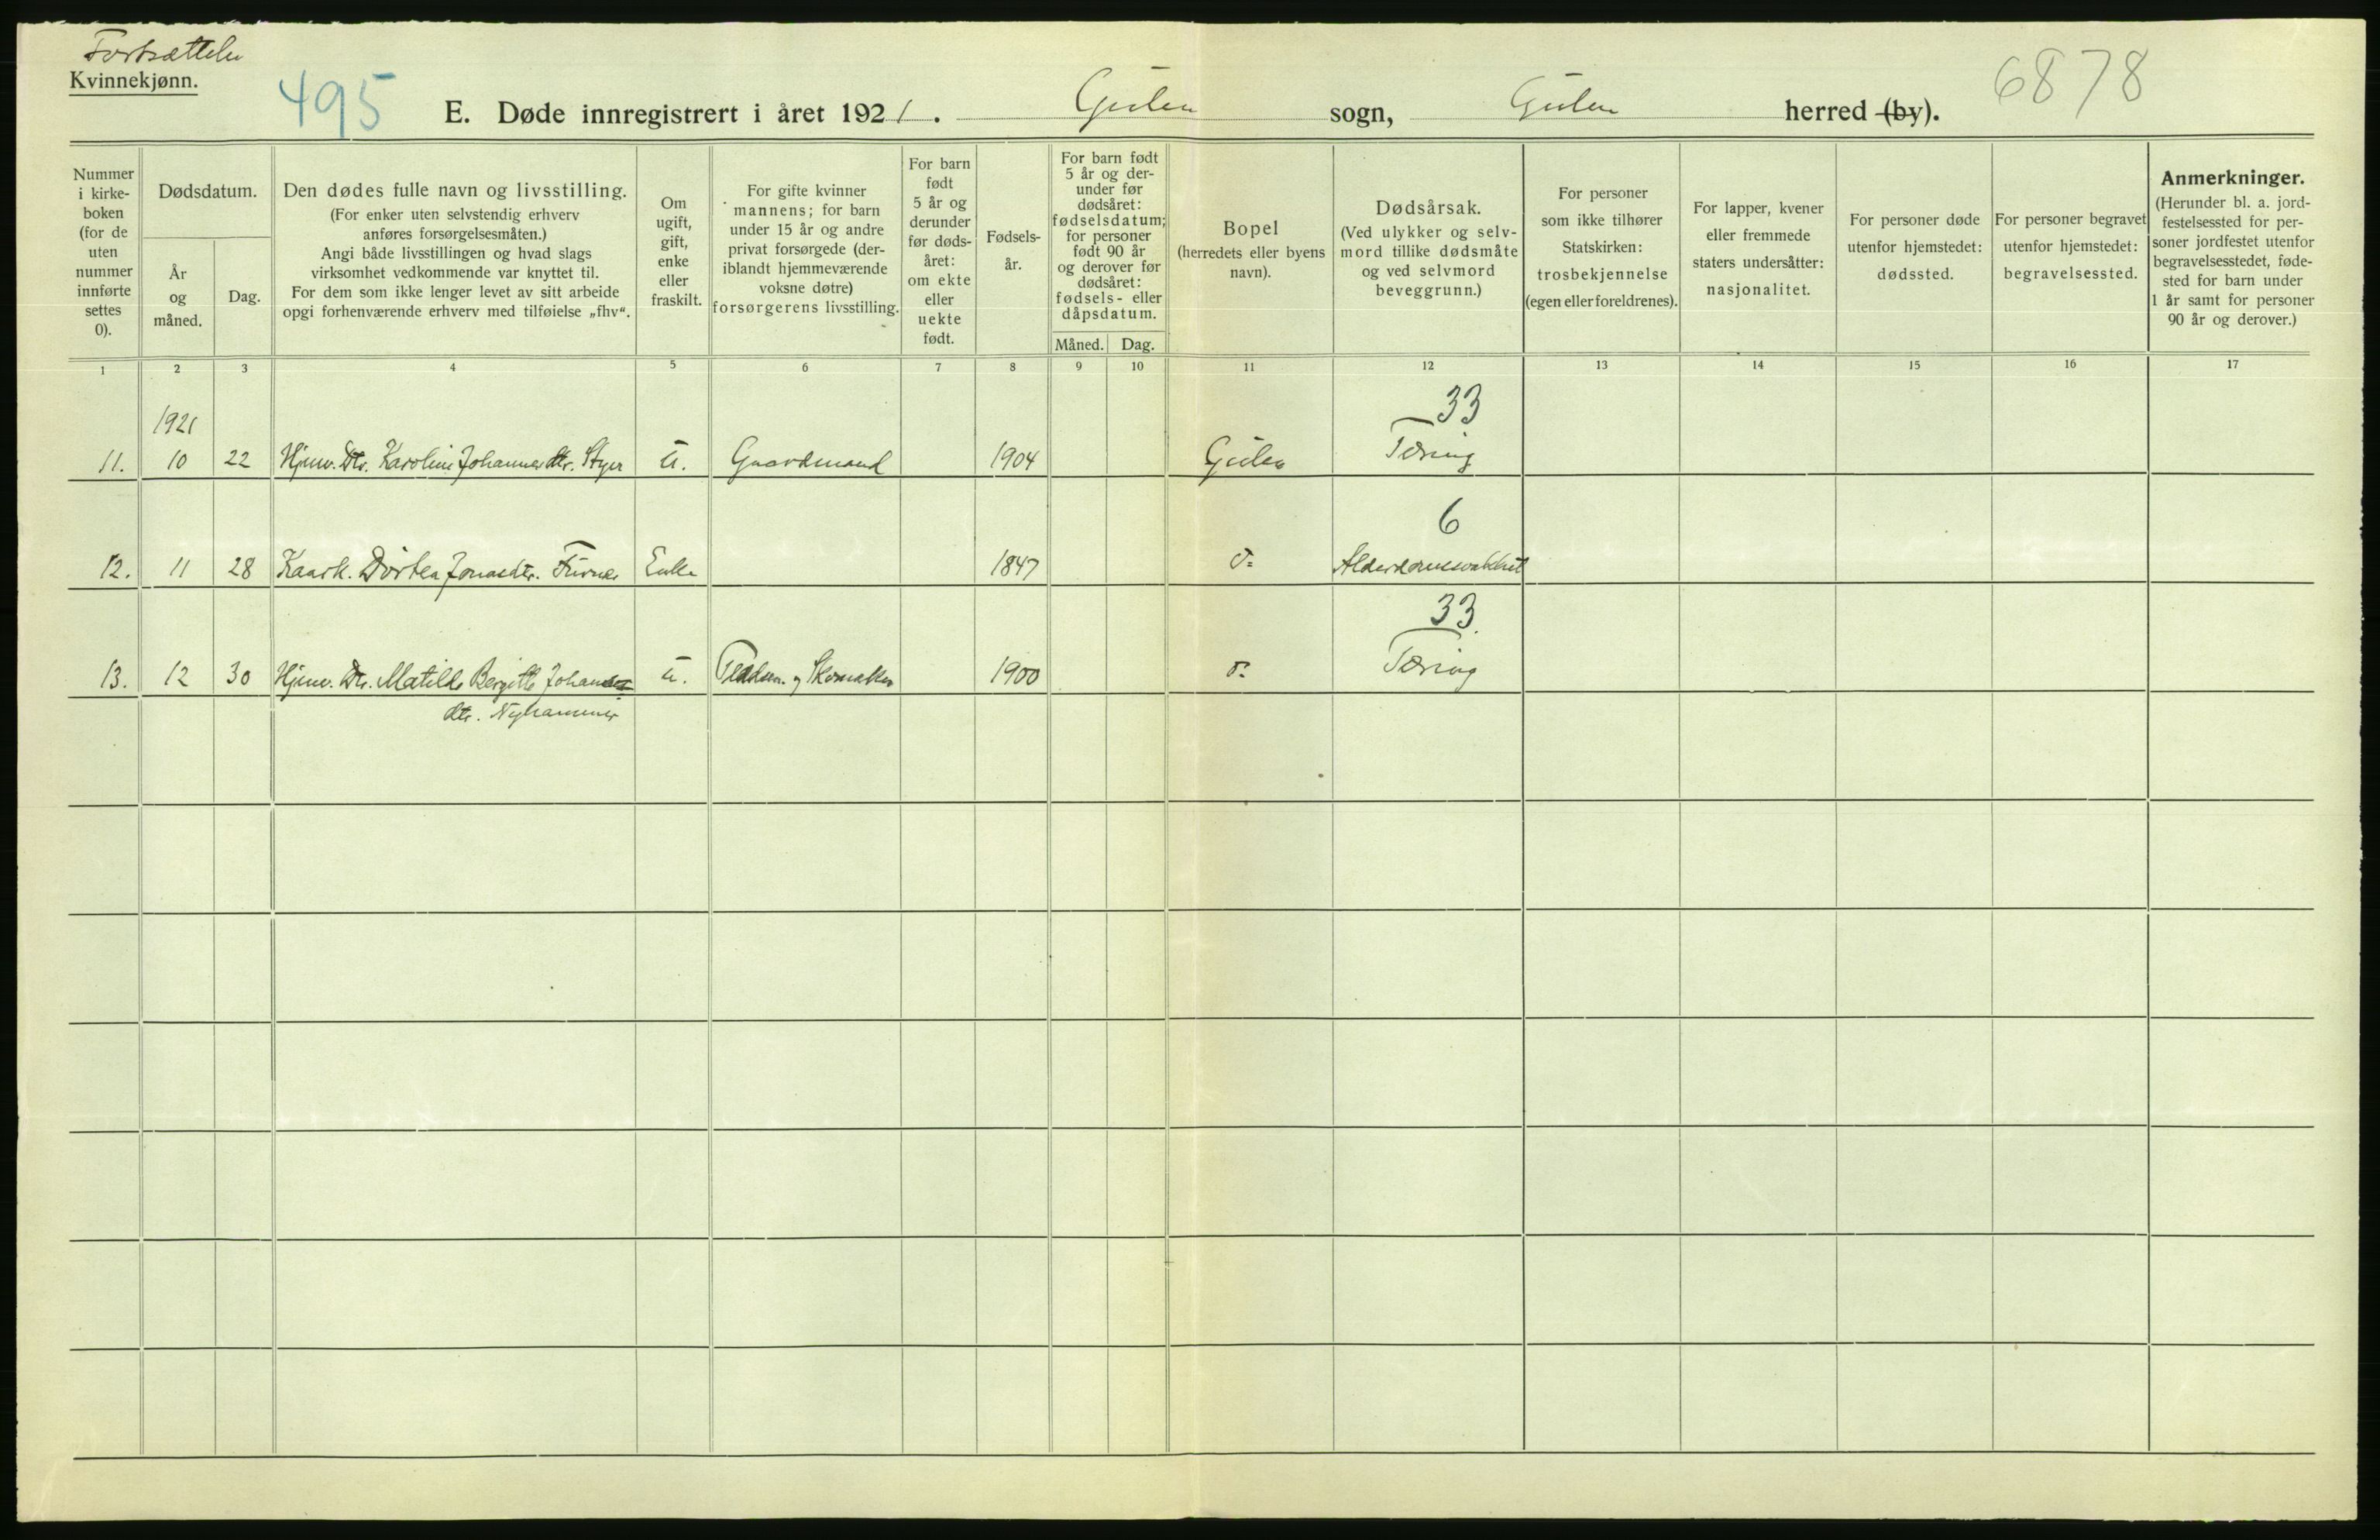 Fortsættelse
Kvinnekjønn.
495
E. Døde innregistrert i året 1921. Gulen sogn, Gulen herred (by).
6878
Nummer i kirke- boken (for de uten nummer innførte settes 0).
Dødsdatum.
År og måned.
Dag.
Den dødes fulle navn og livsstilling.
(For enker uten selvstendig erhverv
anføres forsørgelsesmåten.)
Angi både livsstillingen og hvad slags
virksomhet vedkommende var knyttet til.
For dem som ikke lenger levet av sitt arbeide
opgi forhenværende erhverv med tilføielse „fhv“.
Om ugift, gift, enke eller fraskilt.
For gifte kvinner
mannens; for barn
under 15 år og andre
privat forsørgede (der-
iblandt hjemmeværende
voksne døtre)
forsørgerens livsstilling.
For barn født 5 år og derunder før døds- året: om ekte eller uekte født.
Fødsels- år.
For barn født
5 år og der-
under før
dødsåret:
fødselsdatum;
for personer
født 90 år
og derover før
dødsåret:
fødsels- eller
dåpsdatum.
Måned. Dag.
Bopel
(herredets eller byens
navn).
Dødsårsak.
(Ved ulykker og selv-
mord tillike dødsmåte
og ved selvmord
beveggrunn.)
For personer
som ikke tilhører
Statskirken:
trosbekjennelse
(egen eller foreldrenes).
For lapper, kvener
eller fremmede
staters undersåtter:
nasjonalitet.
For personer døde
utenfor hjemstedet:
dødssted.
For personer begravet
utenfor hjemstedet:
begravelsessted.
Anmerkninger.
(Herunder bl. a. jord-
festelsessted for per-
soner jordfestet utenfor
begravelsesstedet, føde-
sted for barn under
1 år samt for personer
90 år og derover.)
1 2 3 4 5 6 7 8 9 10 11 12 13 14 15 16 17
1921
33
11. 10 22 Hjemv. Dtr. Karoline Johannesdtr. u. Gaardmand 1904 Gulen Tæring
6
12. 11 28 Kaark. Dortea Jonasdtr. Furnes Enke 1847 do Alderdomssvakhet
33
13. 12 30 Hjemv. Dtr. Matilde Bergitte Johannes u. Pladsm. og Skomaker 1900 do Tæring
dtr. Nyhammer